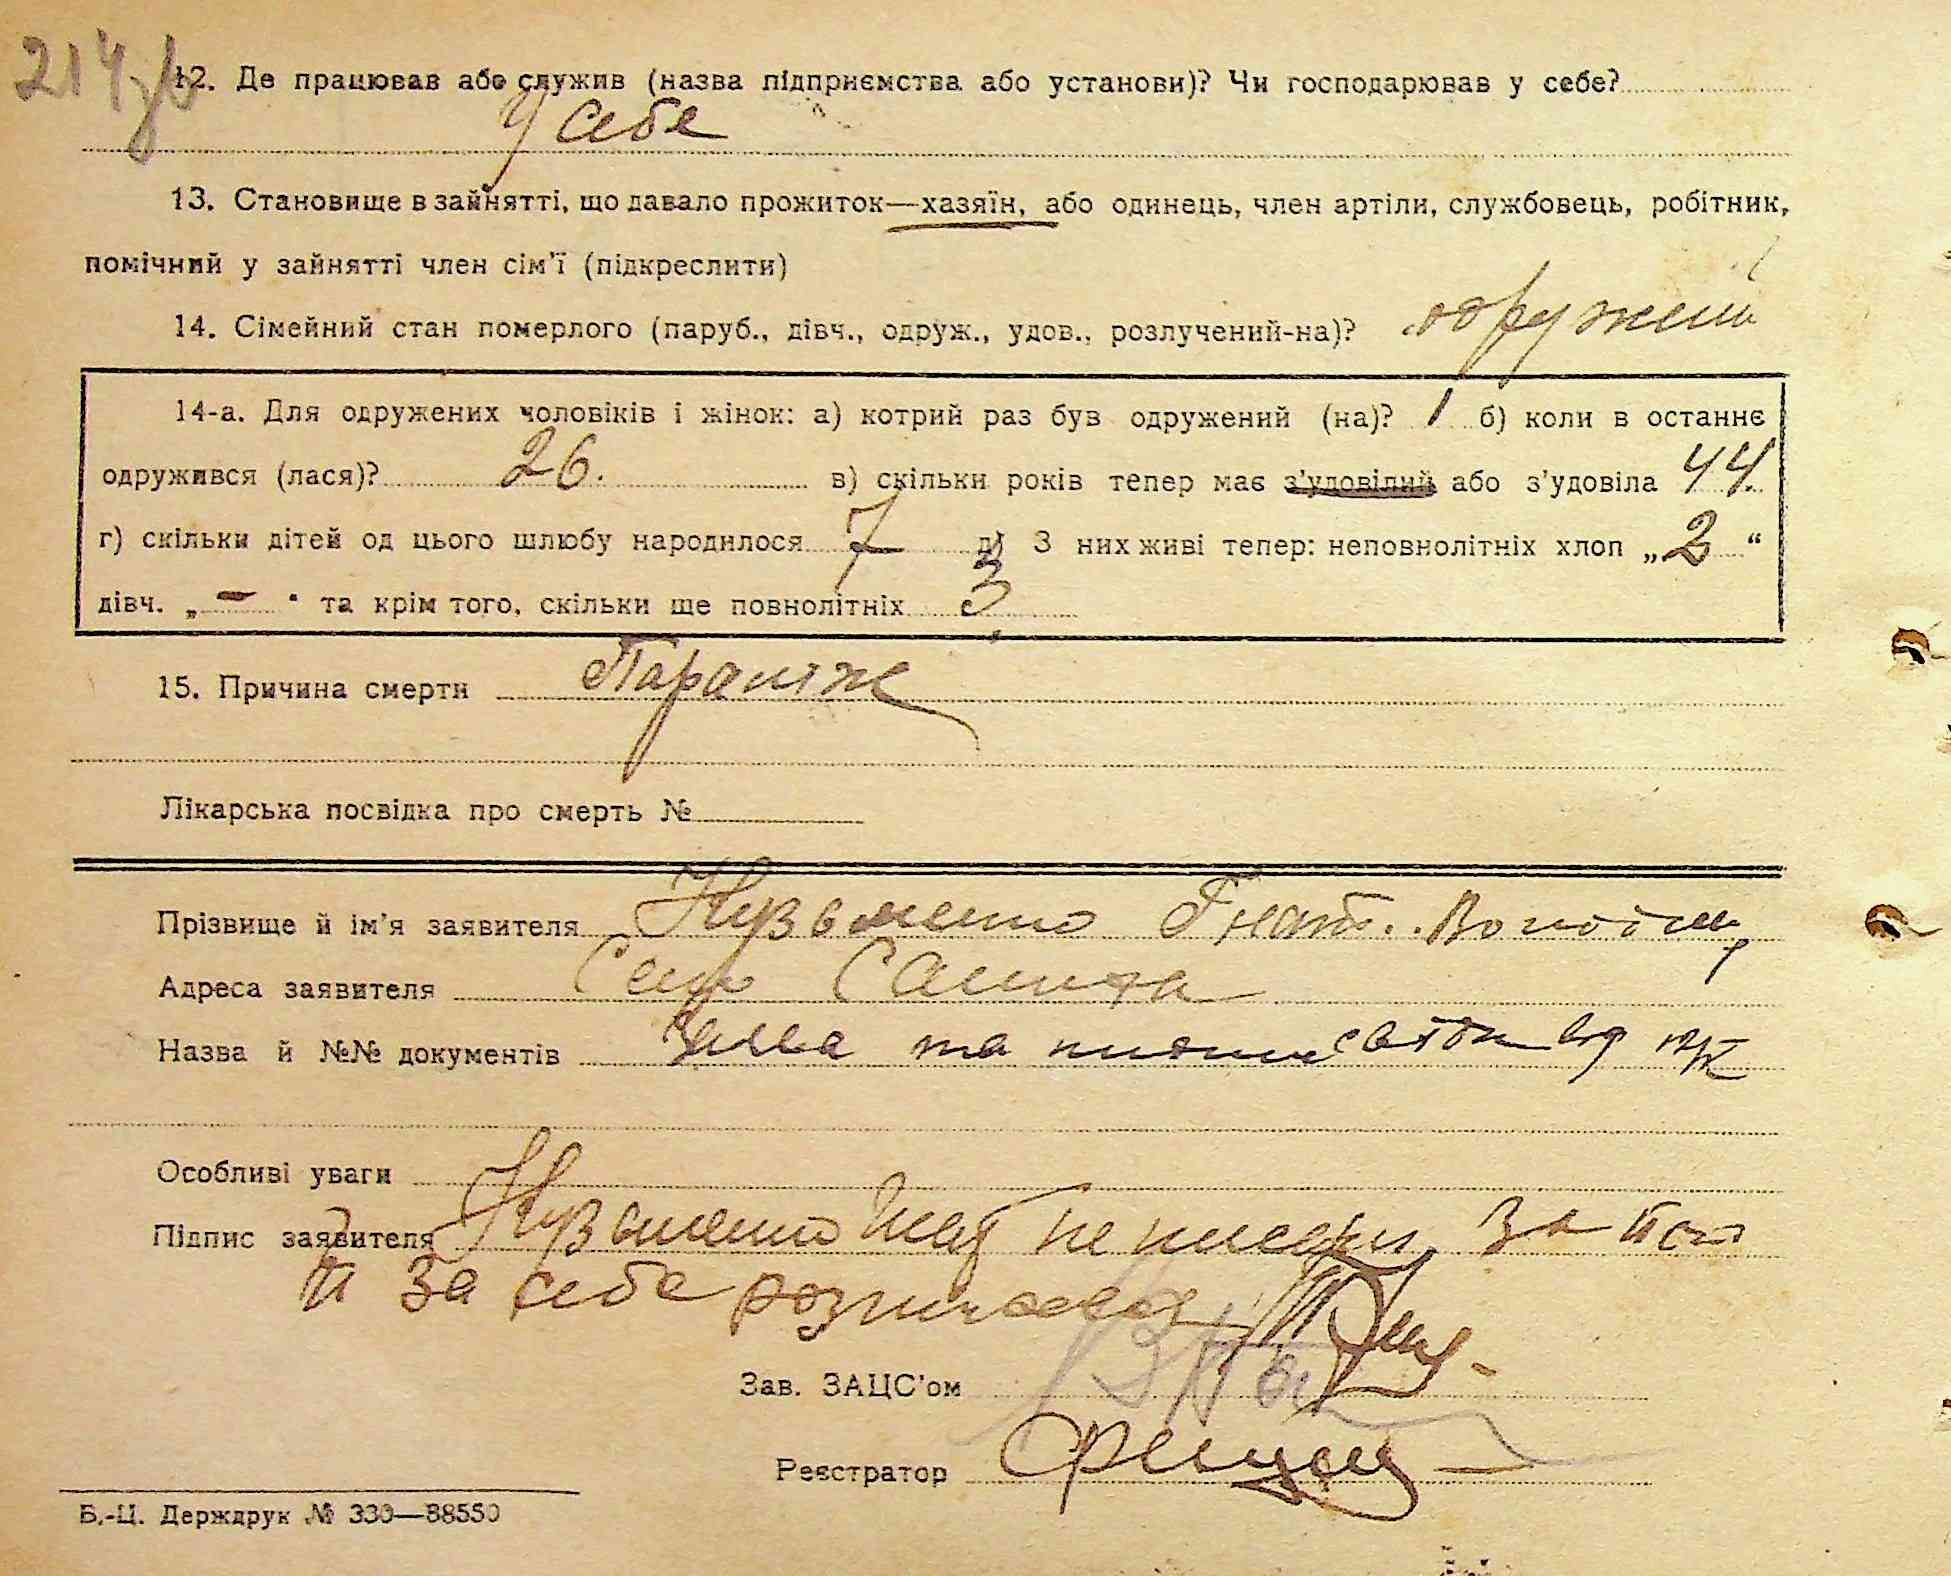 214зв
12. Де працював або служив (назва підприємства або установи)? Чи господарював у себе?
У себе
13. Становище в зайнятті, що давало прожиток—хазяїн, або одинець, член артіли, службовець, робітник,
помічний у зайнятті член сім'ї (підкреслити)
14. Сімейний стан померлого (паруб., дівч., одруж., удов., розлучений-на)? одружений
14-а. Для одружених чоловіків і жінок: а) котрий раз був одружений (на)? 1 б) коли в останнє
одружився (лася)? 26. в) скільки років тепер має з'удовілий або з'удовіла 44.
г) скільки дітей од цього шлюбу народилося 7 д) З них живі тепер: неповнолітніх хлоп „2“
дівч. „—" та крім того, скільки ще повнолітніх 3
15. Причина смерти Параліж
Лікарська посвідка про смерть №
Прізвище й ім'я заявителя Кузьменко Гнат.
Адреса заявителя Село
Назва й №№ документів та
Особливі уваги
Підпис заявителя Кузьменко за
й за себе розписався
Зав. ЗАЦС'ом
Реєстратор
Б.-Ц. Держдрук № 330—88550